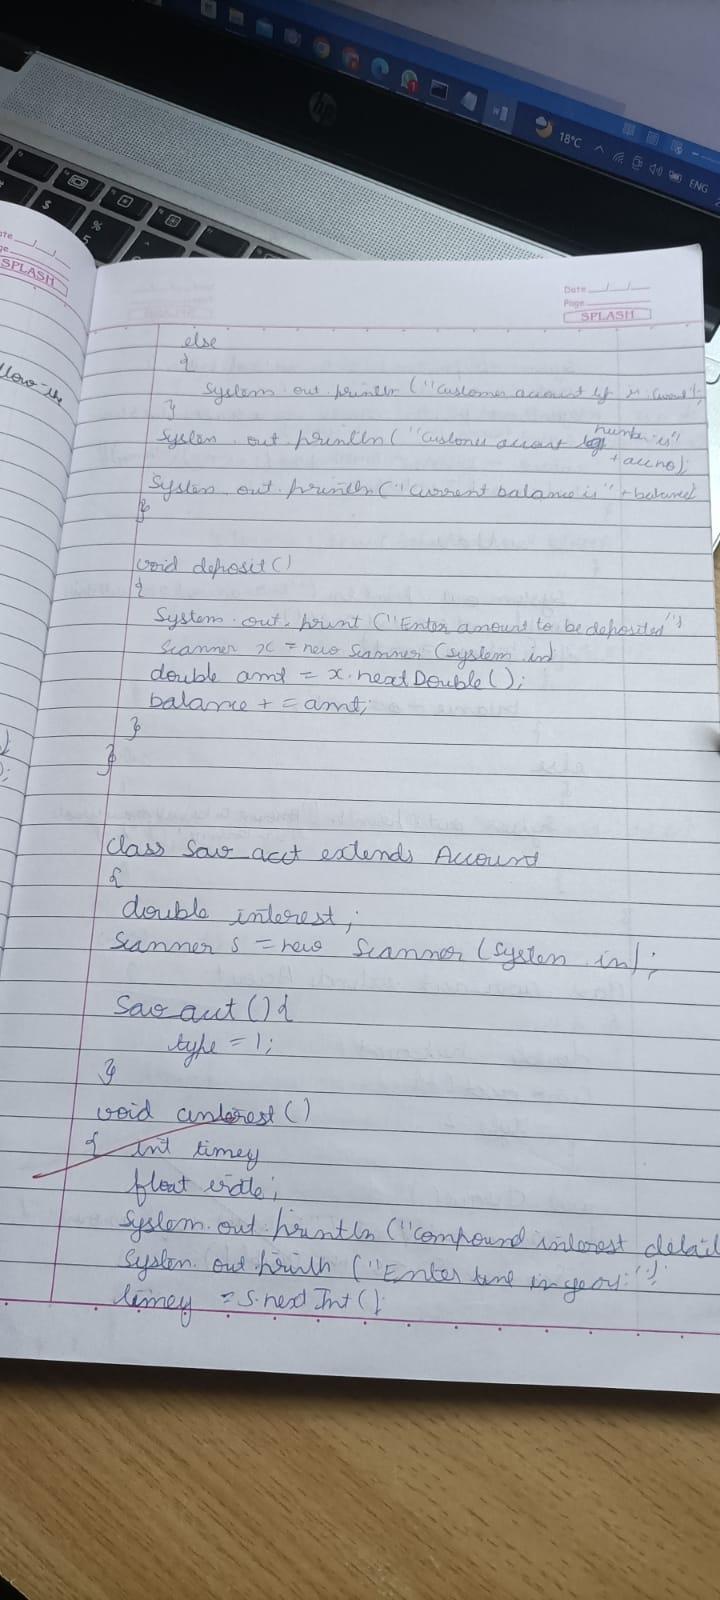 18°C
ENG
hp
$
%
5
SPLASH
Date
Page
SPLASH
else
{
System.out.println ("Customer account
}
System.out.println ("Customer account number is"
+accno);
System.out.println ("Current balance is" +balance
}
void deposit()
{
System.out.print ("Enter amount to be deposited")
Scanner x = new Scanner (System.in)
double amt = x.nextDouble();
balance += amt;
}
}
class Sav_acct extends Account
{
double interest;
Scanner s = new Scanner (System.in);
Sav_acct () {
type = 1;
}
void interest()
{ int timey
float
System.out.println ("Compound interest detail
System.out.println ("Enter time in year:");
timey = s.nextInt();